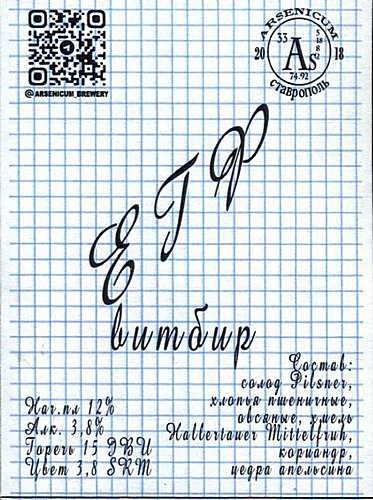 @ARSENICUM_BREWERY
ARSENICUM
33
As
5
18
8
2
20 18
74.92
Ставрополь
ЕГФ
витбир
Нач.пл 12%
Алк. 3,8%
Горечь 15 IBU
Цвет 3,8 SRM
Состав:
солод Pilsner,
хлопья пшеничные,
овсяные, хмель
Hallertauer Mittelfruh,
кориандр,
цедра апельсина